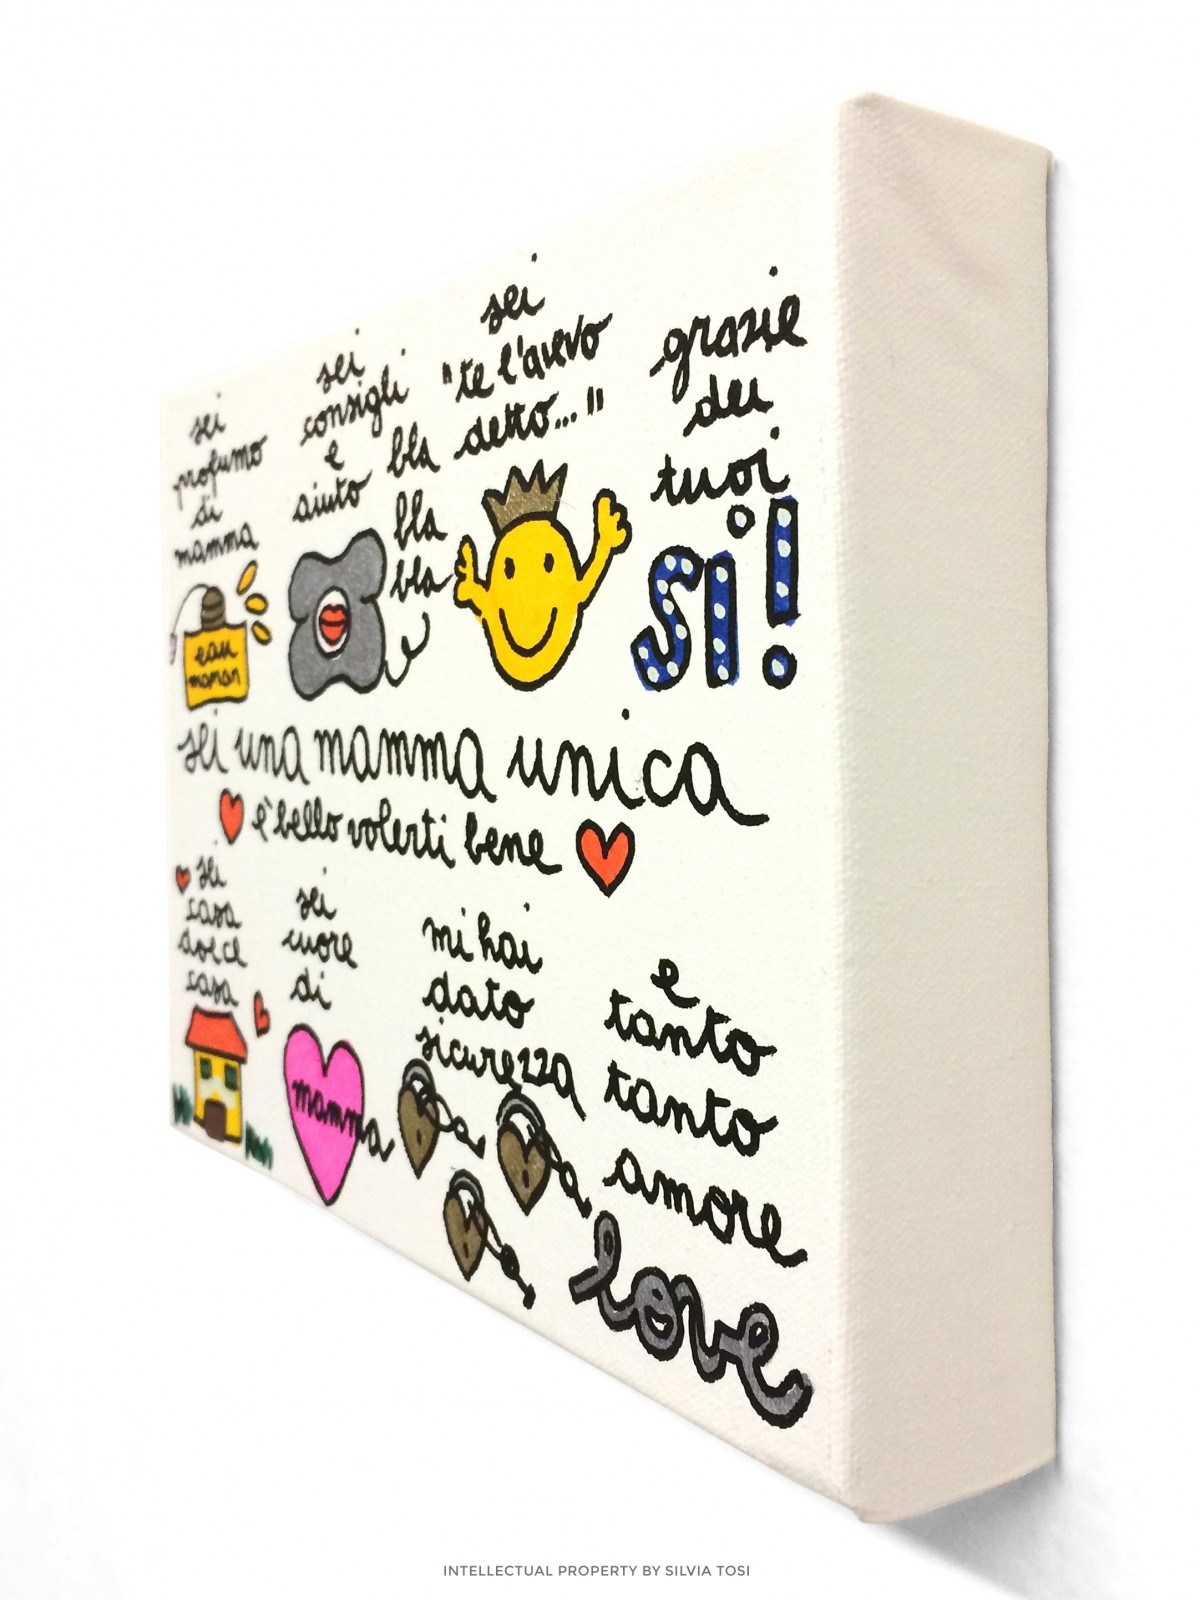 sei
profumo
di
mamma
eau
maman
sei
consigli
e
aiuto
bla
bla
bla
sei
"te l'avevo
detto..."
grazie
dei
tuoi
Sì!
sei una mamma unica
è bello volerti bene
sei
casa
dolce
casa
sei
cuore
di
mamma
mi hai
dato
sicurezza
e
tanto
tanto
amore
love
INTELLECTUAL PROPERTY BY SILVIA TOSI